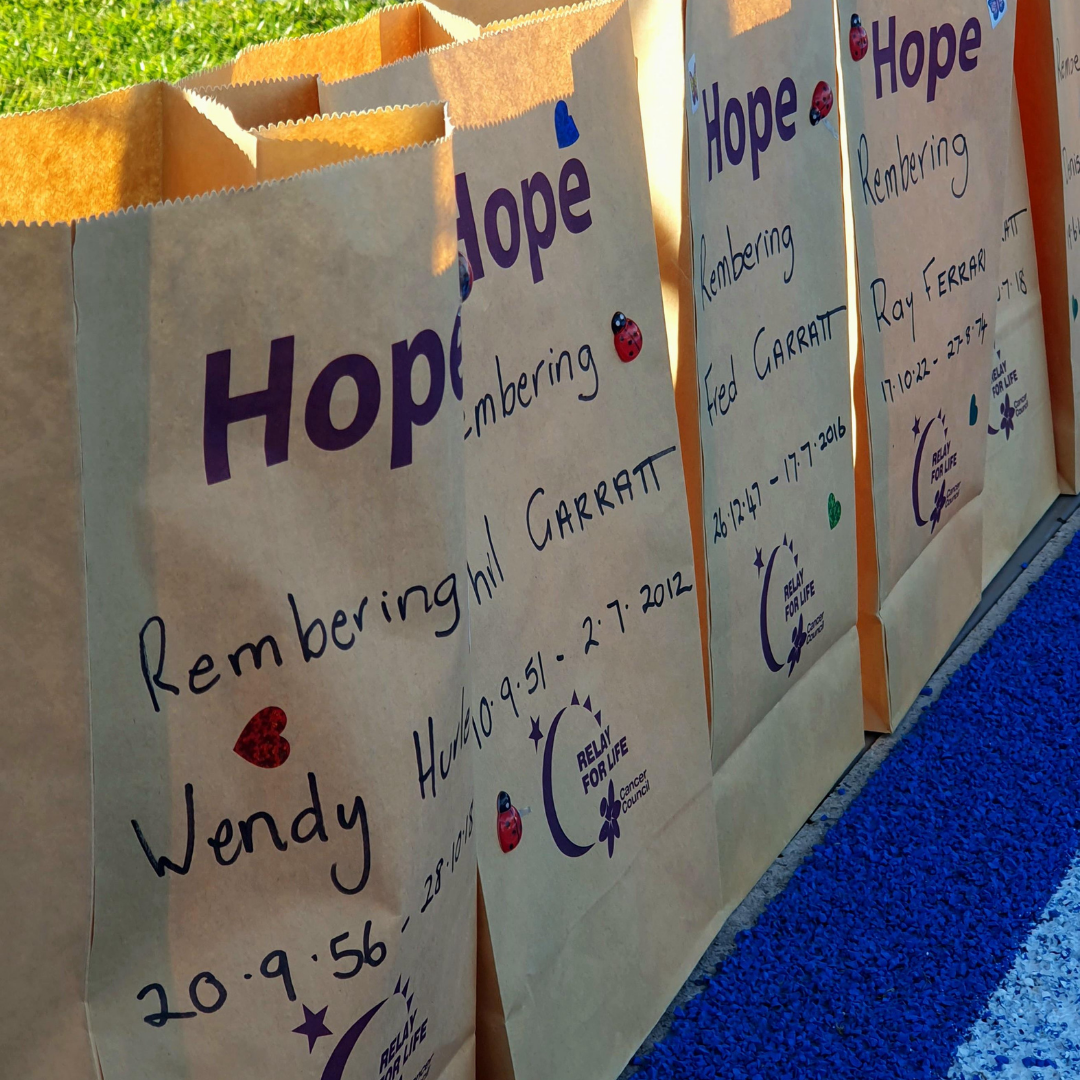 Hope
Rembering
Wendy
20.9.56 - 28.10.18
RELAY
FOR LIFE
Hope
mbering
hil GARRATT
10.9.51 - 2.7.2012
RELAY
FOR LIFE
Cancer
Council
Hope
Rembering
Fred GARRATT
26.12.47 - 17.7.2016
RELAY
FOR LIFE
Cancer
Council
Hope
Rembering
Ray FERRARI
17.10.22 - 27.8.74
RELAY
FOR LIFE
Cancer
Council
ATT
7.18
RELAY
FOR LIFE
Cancer
Council